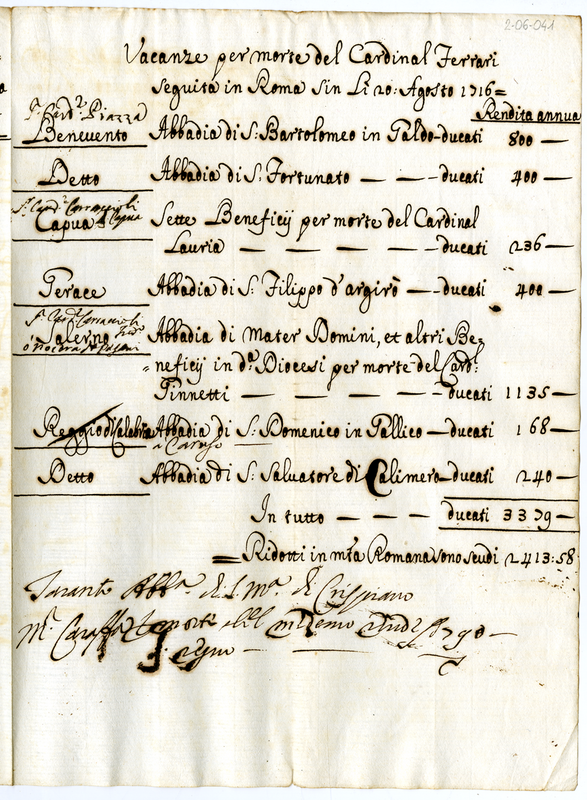 2-06-041
Vacanze per morte del Cardinal Ferrari
seguita in Roma sin li 20: Agosto 1716=
Rendita annua
S.r Card.l Piazza
Benevento Abbadia di S: Bartolomeo in Galdo - ducati 800 —
Detto Abbadia di S: Fortunato — — - ducati 400 —
S.r Card.l Carraccioli
Capua Sette Beneficij per morte del Cardinal
Lauria — — — — — ducati 236 —
Gerace Abbadia di S: Filippo d'argirò — ducati 400 —
S.r Card.l Carraccioli
Salerno Abbadia di Mater Domini, et altri Be=
o Nocera de Pagani
=neficij in d.a Diocesi per morte del Card.l
Pinnetti — — — — ducati 1135 —
Reggio di Calabria Abbadia di S: Domenico in Gallico — ducati 168 —
a Caruso
Detto Abbadia di S: Salvatore di Calimera — ducati 240 —
In tutto — — — ducati 3379 —
= Ridotti in m.ta Romana sono scudi 2413:58
Taranto Abb.a di S. M.a di Crispiano
M.r Caraffa morte del med.mo 90 —
Regno